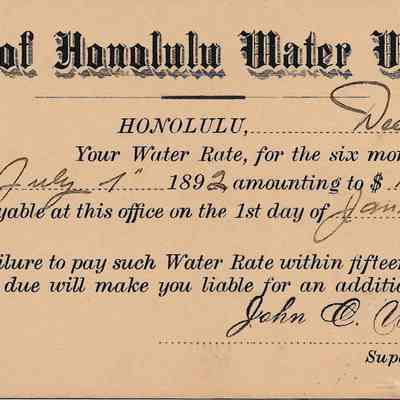 of Honolulu Water W
HONOLULU, Dec
Your Water Rate, for the six mon
July 1st 1892 amounting to $
yable at this office on the 1st day of Jan
ilure to pay such Water Rate within fifteen
due will make you liable for an additio
John C.
Sup